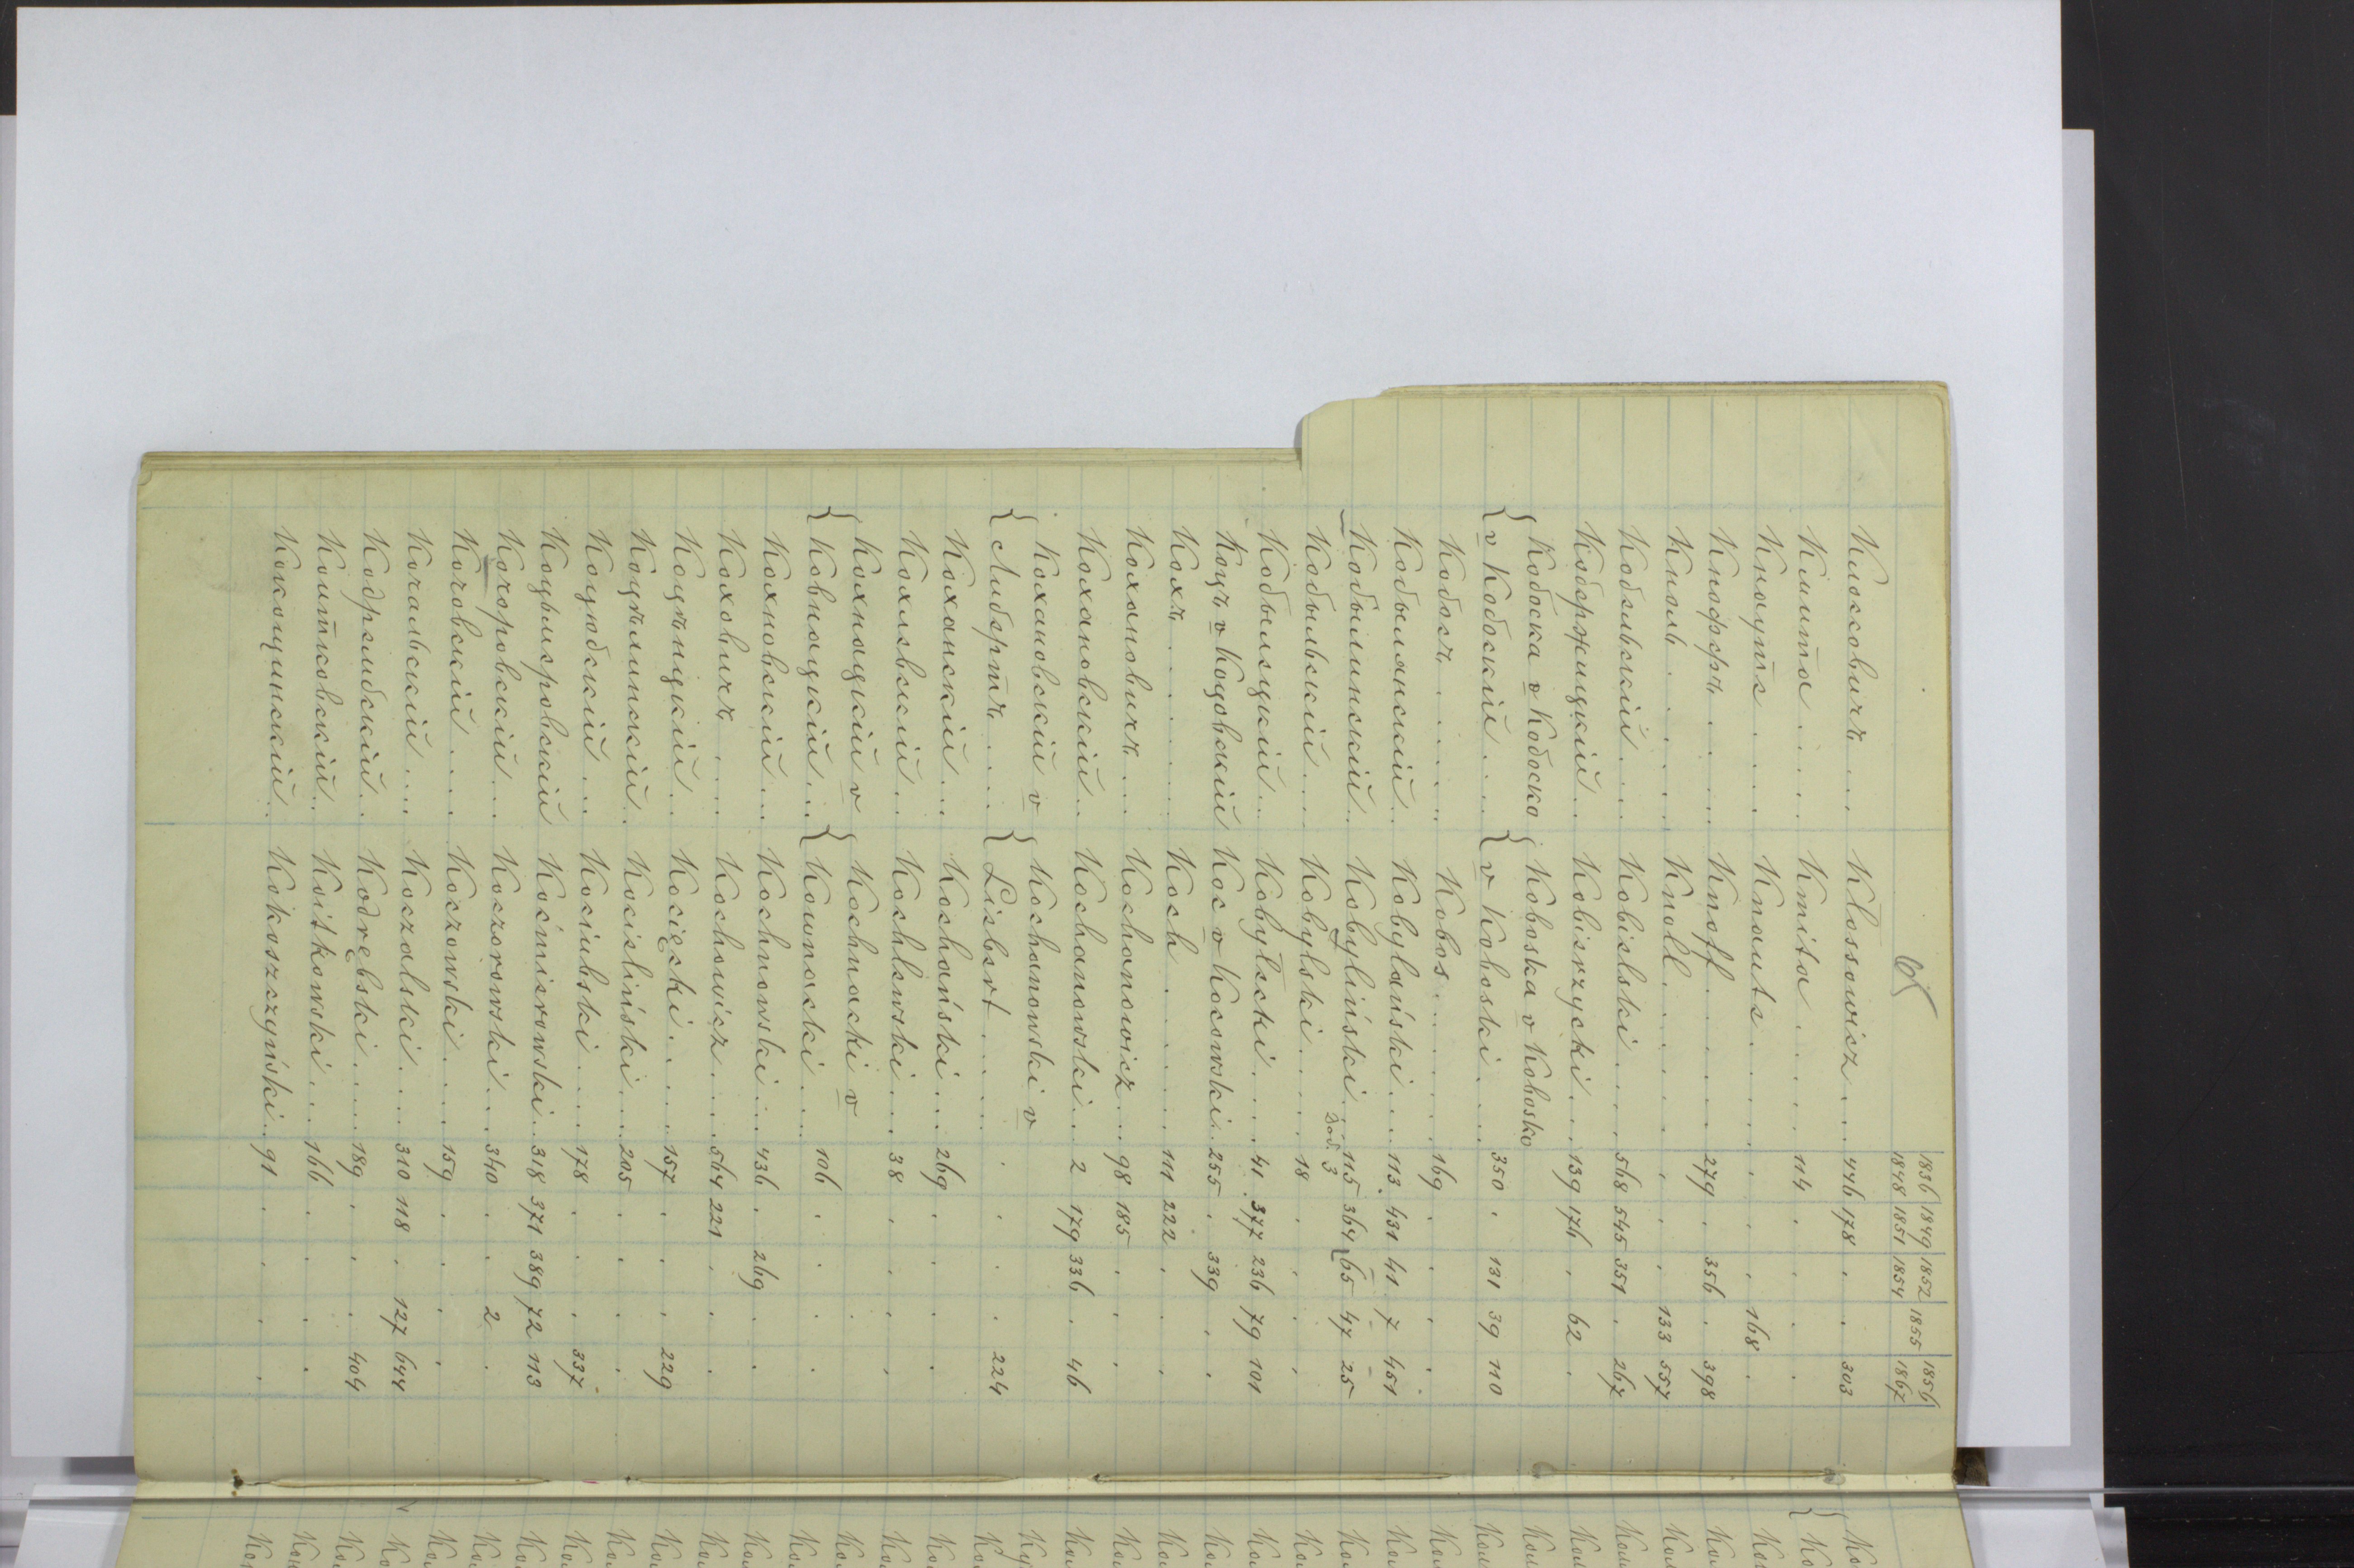 65
1836 1849 1852 1855 1856
1848 1851 1854 1867
Клоссовичъ ... Kłossowicz ... 446 178 . . 303
Кмита .... Kmita .... 114 . . . .
Кнауте .... Knaute .... . . . 168 .
Кнофъ .... Knoff .... 279 . 356 . 398
Кноль .... Knoll .... . . . 133 557
Кобельскій ... Kobielski ... 568 545 351 . 267
Кобержицкій .. Kobierzycki ... 139 174 . 62 .
{ Кобоска v Кобоско { Koboska v Kobosko
{ v Кобоскій .... { v Koboski .... 350 . 131 39 110
Кобосъ .... Kobos .... 169 . . . .
Кобылянскій .. Kobylański ... 113 431 41 7 451
Кобылинскій .. Kobyliński ... 115 364 65 47 25
Dod. 3
Кобыльскій ... Kobylski .... 18 . . . .
Кобылецкій ... Kobyłecki .... 41 377 236 79 101
Коцъ v Коцовскій Koc v Kocowski .. 255 . 339 . .
Кохъ .... Koch .... 111 222 . . .
Кохановичъ ... Kochanowicz ... 98 185 . . .
Кохановскій .. Kochanowski .. 2 179 336 . 46
{ Кохановскій v { Kochanowski v
{ Либертъ .... { Liebert .... . . . . 224
Коханскій ... Kochański ... 269 . . . .
Кохлевскій .. Kochlewski ... 38 . . . .
{ Кохнацкій v { Kochnacki v
{ Ковнацкій ... { Kownacki ... 106 . . . .
Кохновскій ... Kochnowski ... 436 . 269 . .
Коховичъ ... Kochowicz ... 564 221 . . .
Коцѣнцкій .. Kocięcki .... 157 . . . 229
Коцѣлинскій . Kocieliński ... 205 . . . .
Коцюбскій .. Kociubski .... 178 . . . 337
Коцмеровскій Koćmierowski .. 318 371 389 72 113
Кочоровскій ... Koczorowski ... 340 . . 2 .
Кочовскій .... Koczowski .... 159 . . . .
Кочальскій ... Koczalski ... 310 118 . 127 644
Кодрембскій . Kodrębski .... 189 . . . 404
Коитковскій .. Koitkowski ... 166 . . . .
Кокощинскій . Kokoszczyński .. 91 . . . .